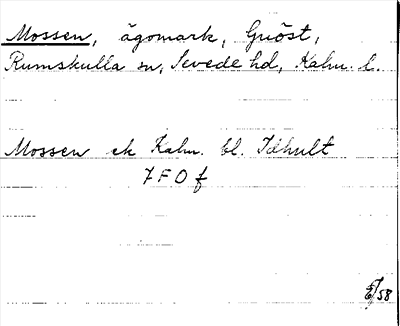 Mossen, ägomark, Gnöst,
Rumskulla sn, Sevede hd, Kalm. l.
Mossen ek Kalm. bl. Idhult
7 F 0 f
/58